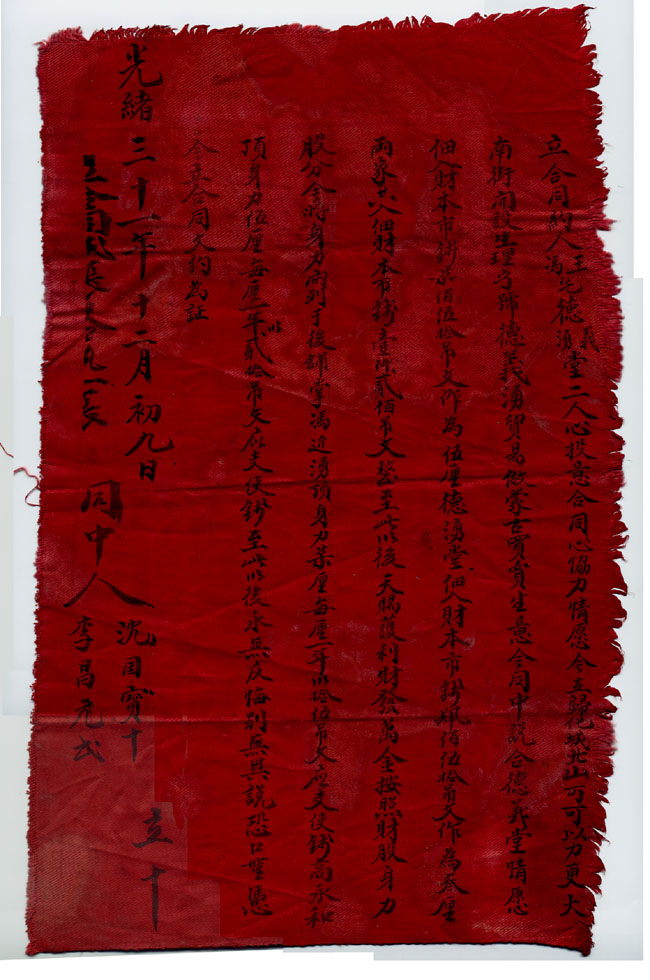 立合同約人王馮德德義湧堂二人心投意合同心協力情愿今在歸化城北山可可以力更大
南街開設生理字號德義湧貿易做蒙古買賣生意今同中說合德義堂情愿
佃入財本市錢 佰伍拾吊文作為伍厘德湧堂佃入財本市錢 佰伍拾吊文作為叁厘
兩家共入佃財本市錢壹仟貳佰吊文整至此以後天賜護利財發萬金按照財股身力
股分 身力開列于後師掌馮近湧頂身力柒厘每厘一年以拾伍吊文應支使錢高永和
頂身力伍厘每厘一年以貳拾吊文應支使錢至此以後永無反悔別無異說恐口無憑
今立合同文約為証
光緒三十一年十二月初九日 立十
同中人 沈国寶十 李昌